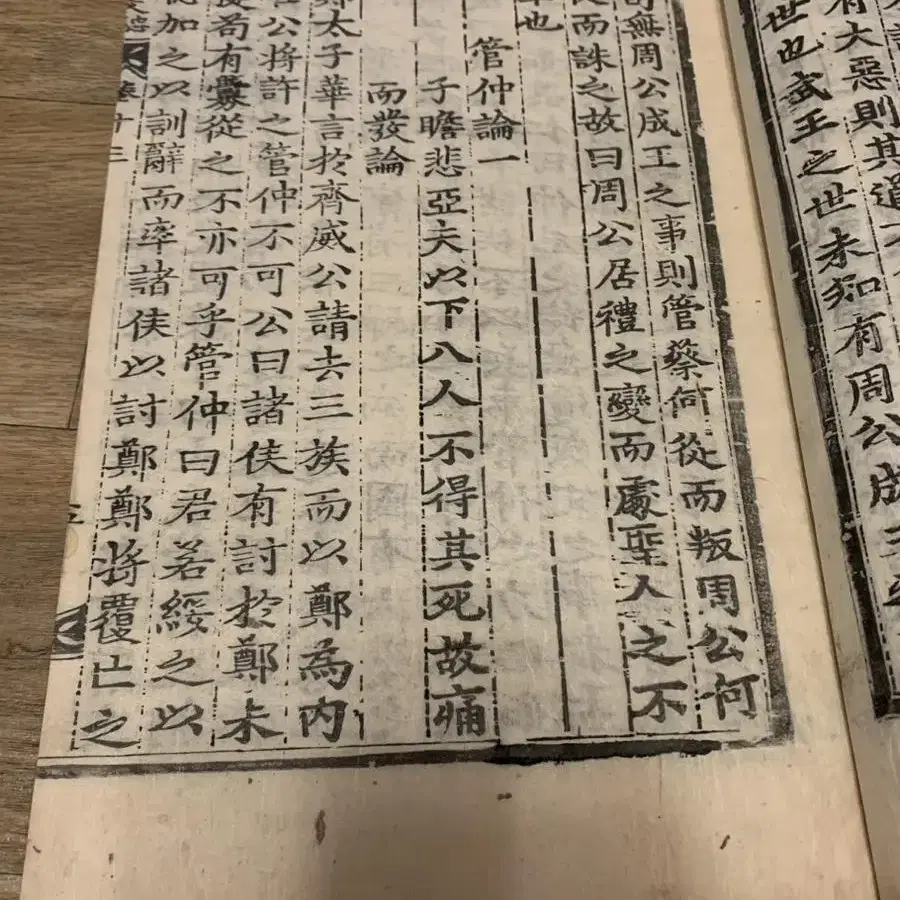 有大惡則其道
世也武王之世未知有周公成王
苟無周公成王之事則管蔡何從而叛周公何
從而誅之故曰周公居禮之變而處聖人之不
也
管仲論一
子瞻悲亞夫以下八人不得其死故痛
而發論
鄭太子華言於齊威公請去三族而以鄭為內
公將許之管仲不可公曰諸侯有討於鄭未
苟有釁從之不亦可乎管仲曰君若綏之以
德加之以訓辭而率諸侯以討鄭鄭將覆亡之
卷十三